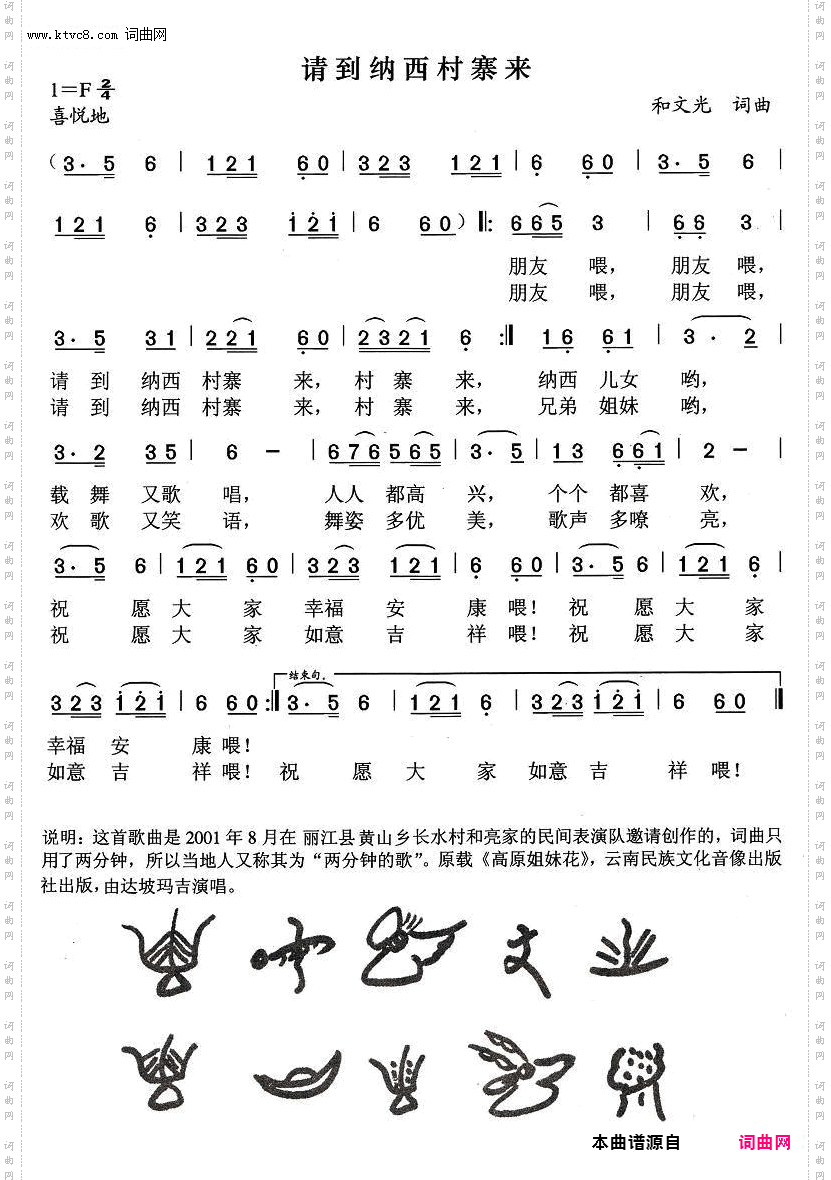 www.ktvc8.com 词曲网
请到纳西村寨来
1=F 2/4
喜悦地
和文光 词曲
(3·5 6 | 121 60 | 323 121 | 6 60 | 3·5 6 |
121 6 | 323 i2i | 6 60) ‖: 665 3 | 66 3 |
朋友 喂, 朋友 喂,
朋友 喂, 朋友 喂,
3·5 31 | 221 60 | 2321 6 :‖ 16 61 | 3·2 |
请到 纳西 村寨 来, 村寨 来, 纳西 儿女 哟,
请到 纳西 村寨 来, 村寨 来, 兄弟 姐妹 哟,
3·2 35 | 6 - | 676565 | 3·5 | 13 661 | 2 - |
载舞 又歌 唱, 人人 都高 兴, 个个 都喜 欢,
欢歌 又笑 语, 舞姿 多优 美, 歌声 多嘹 亮,
3·5 6 | 121 60 | 323 121 | 6 60 | 3·5 6 | 121 6 |
祝 愿大 家 幸福 安 康喂! 祝 愿大 家
祝 愿大 家 如意 吉 祥喂! 祝 愿大 家
结束句。
323 i2i | 6 60 :‖ 3·5 6 | 121 6 | 323 i2i | 6 60 ‖
幸福 安 康喂!
如意 吉 祥喂! 祝 愿大 家 如意 吉 祥 喂!
说明: 这首歌曲是 2001 年 8 月在 丽江县黄山乡长水村和亮家的民间表演队邀请创作的, 词曲只
用了两分钟, 所以当地人又称其为“两分钟的歌”。原载《高原姐妹花》, 云南民族文化音像出版
社出版, 由达坡玛吉演唱。
本曲谱源自 词曲网